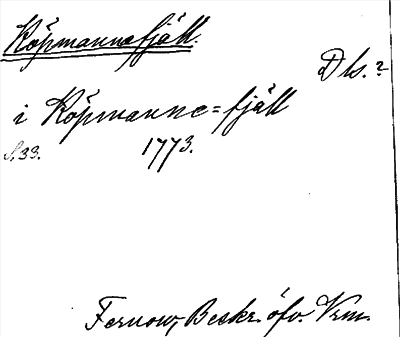 Köpmannafjäll.
Dls.?
i Köpmanne=fjäll
S. 33. 1773.
Fernow, Beskr. öfv. Vrm.